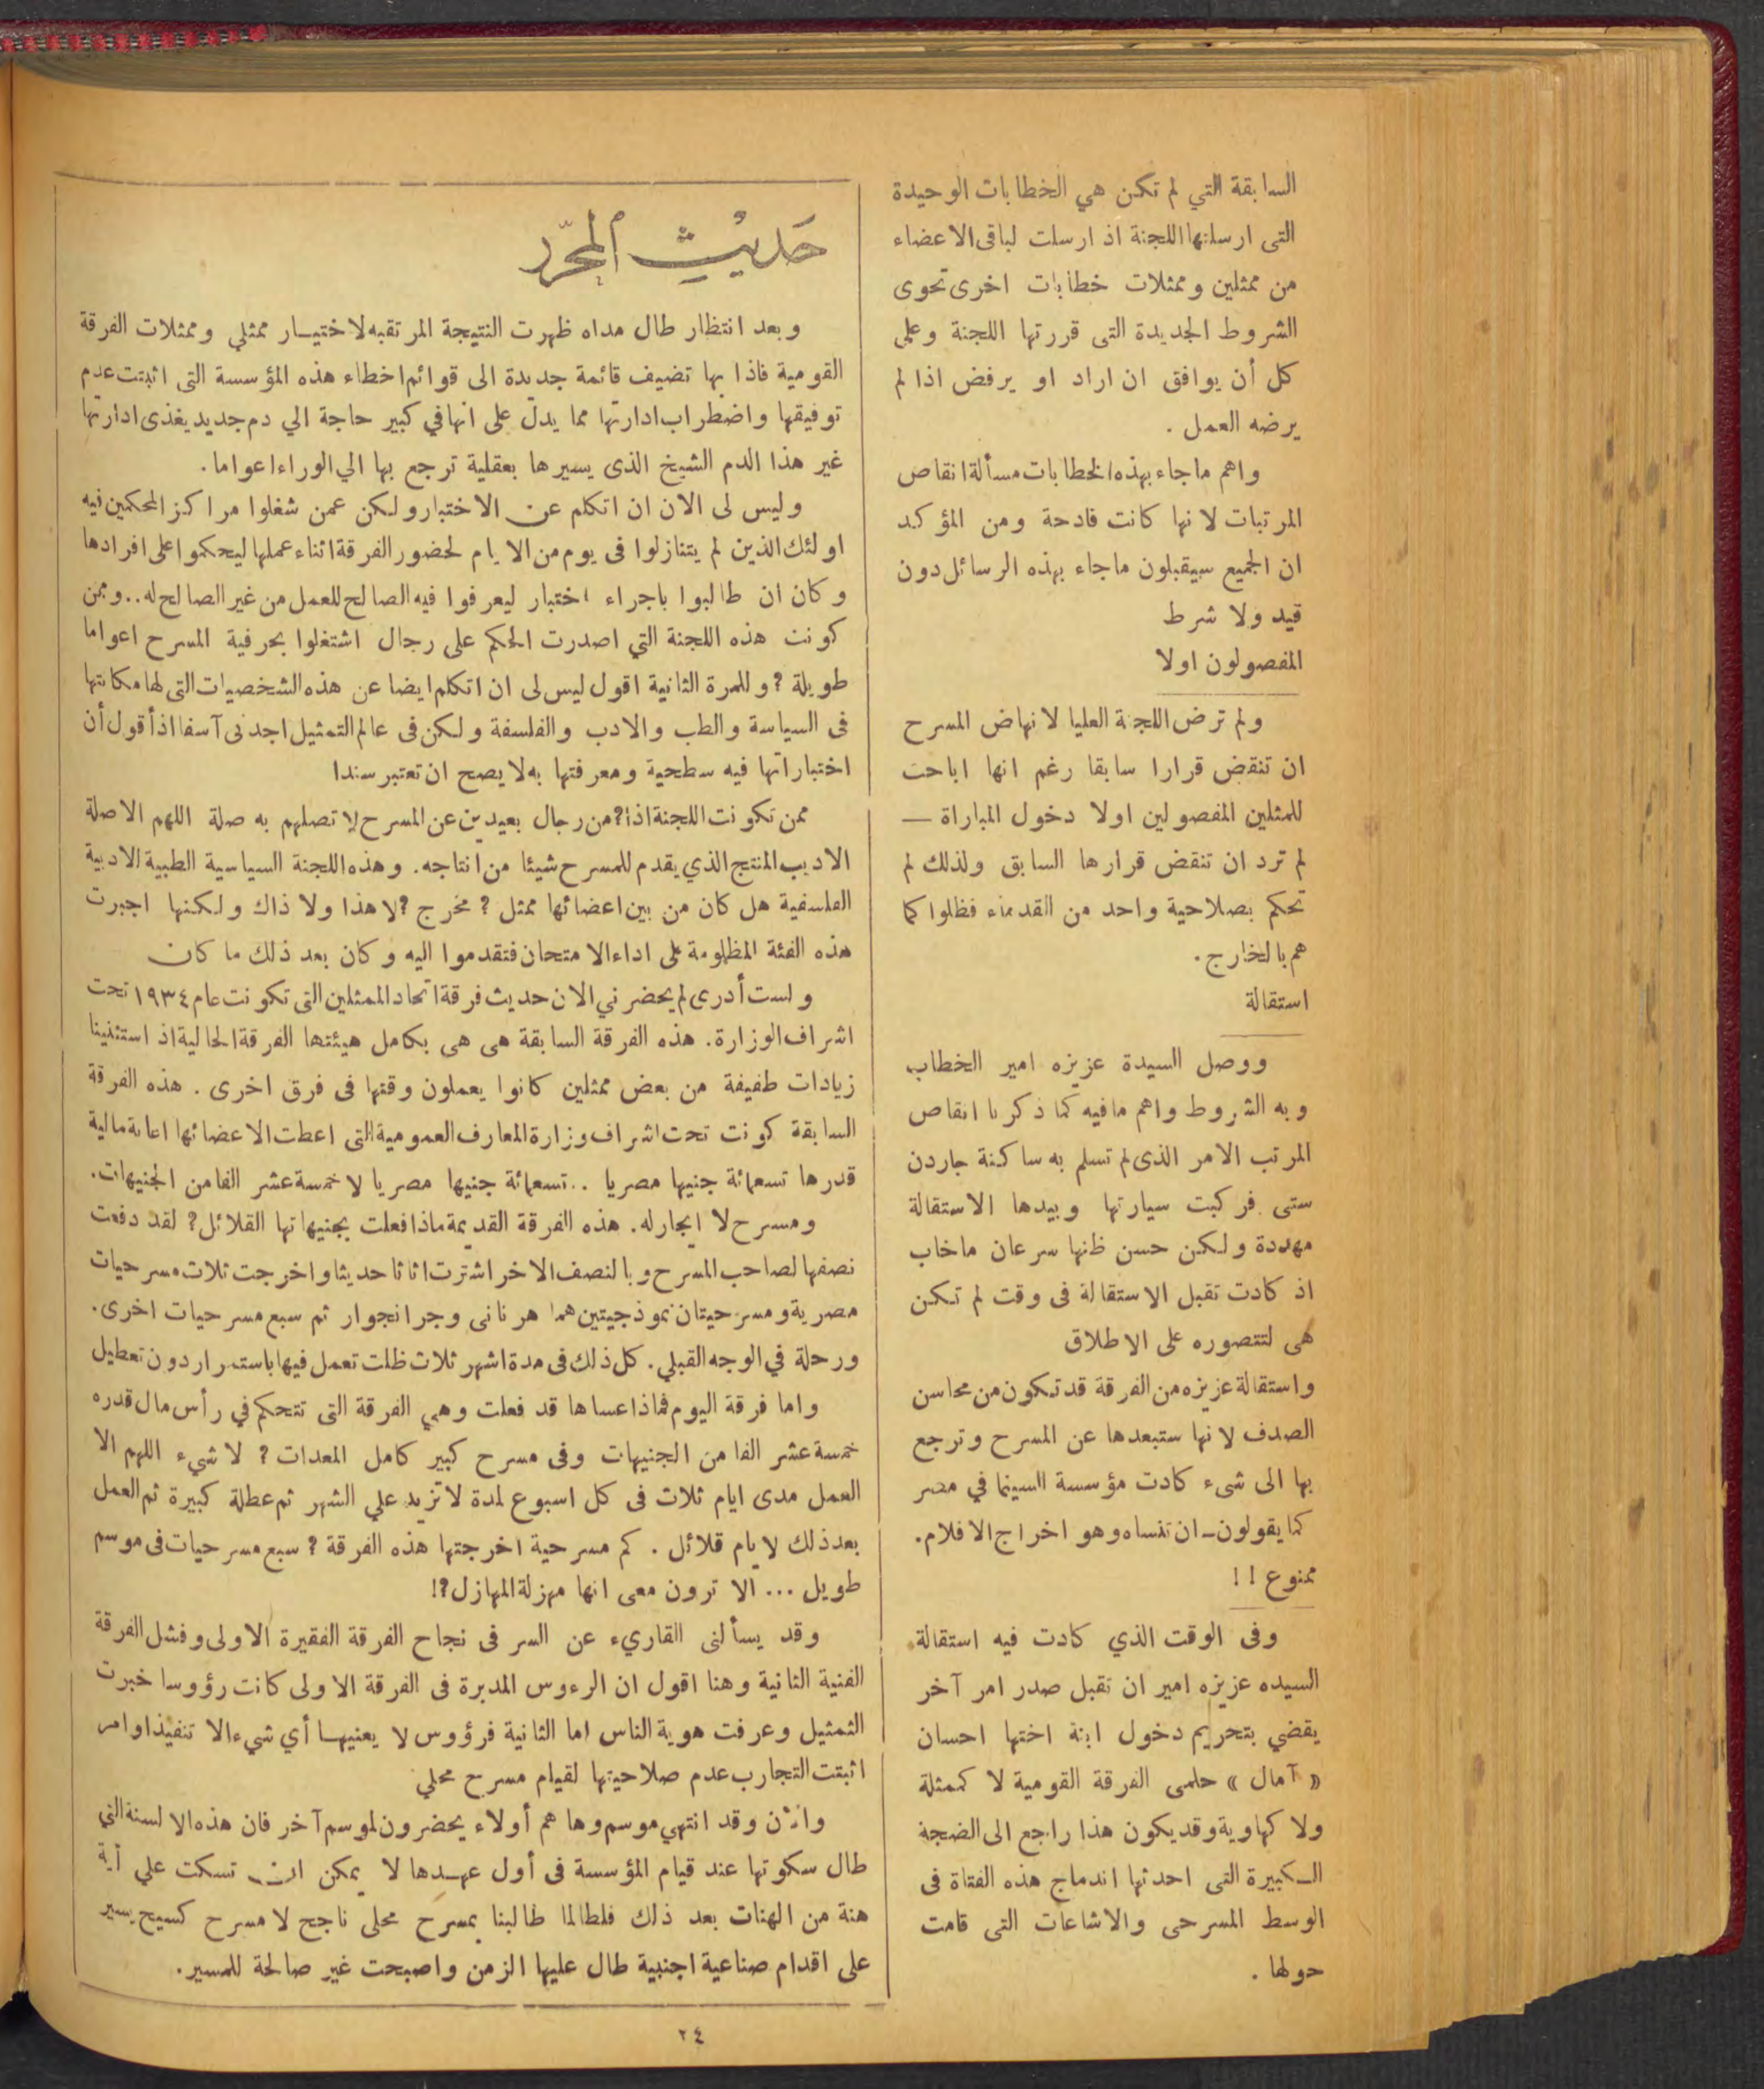 السابقة التي لم تكن هي الخطابات الوحيدة
التى ارسلتها اللجنة اذ ارسلت لباقى الاعضاء
من ممثلين وممثلات خطابات اخرى تحوى
الشروط الجديدة التى قررتها اللجنة وعلى
كل أن يوافق ان اراد او يرفض اذا لم
يرضه العمل .
واهم ماجاء بهذه الخطابات مسألة انقاص
المرتبات لانها كانت فادحة ومن المؤكد
ان الجميع سيقبلون ماجاء بهذه الرسائل دون
قيد ولا شرط
المفصولون اولا
ولم ترض اللجنة العليا لانهاض المسرح
ان تنقض قرارا سابقا رغم انها اباحت
للمثلين المفصولين اولا دخول المباراة —
لم ترد ان تنقض قرارها السابق ولذلك لم
تحكم بصلاحية واحد من القدماء فظلوا كما
هم بالخارج .
استقالة
ووصل السيدة عزيزه امير الخطاب
وبه الشروط واهم مافيه كما ذكرنا انقاص
المرتب الامر الذى لم تسلم به ساكنة جاردن
ستى فركبت سيارتها وبيدها الاستقالة
مهددة ولكن حسن ظنها سرعان ماخاب
اذ كادت تقبل الاستقالة فى وقت لم تكن
هى لتتصوره على الاطلاق
واستقالة عزيزه من الفرقة قد تكون من محاسن
الصدف لانها ستبعدها عن المسرح وترجع
بها الى شىء كادت مؤسسة السينما في مصر
كما يقولون ـ ان تنساه وهو اخراج الافلام .
ممنوع ! !
وفى الوقت الذي كادت فيه استقالة
السيده عزيزه امير ان تقبل صدر امر آخر
يقضي بتحريم دخول ابنة اختها احسان
« آمال » حلمى الفرقة القومية لا كممثلة
ولا كهاوية وقد يكون هذا راجع الى الضجة
الـكبيرة التى احدثها اندماج هذه الفتاة فى
الوسط المسرحى والاشاعات التى قامت
حولها .
حَديْث المحرّر
وبعد انتظار طال مداه ظهرت النتيجة المرتقبه لاختيـار ممثلي وممثلات الفرقة
القومية فاذا بها تضيف قائمة جديدة الى قوائم اخطاء هذه المؤسسة التى اثبتت عدم
توفيقها واضطراب ادارتها مما يدل على انها في كبير حاجة الي دم جديد يغذى ادارتها
غير هذا الدم الشيخ الذى يسيرها بعقلية ترجع بها الي الوراء اعواما .
وليس لى الان ان اتكلم عن الاختبار ولكن عمن شغلوا مراكز المحكمين فيه
اولئك الذين لم يتنازلوا فى يوم من الايام لحضور الفرقة اثناء عملها ليحكموا على افرادها
وكان ان طالبوا باجراء اختبار ليعرفوا فيه الصالح للعمل من غير الصالح له . . وممن
كونت هذه اللجنة التي اصدرت الحكم على رجال اشتغلوا بحرفية المسرح اعواما
طويلة ? وللمرة الثانية اقول ليس لى ان اتكلم ايضا عن هذه الشخصيات التى لها مكانتها
فى السياسة والطب والادب والفلسفة ولكن فى عالم التمثيل اجدنى آسفا اذ أقول أن
اختباراتها فيه سطحية ومعرفتها به لا يصح ان تعتبر سندا
ممن تكونت اللجنة اذا ? من رجال بعيدين عن المسرح لا تصلهم به صلة اللهم الا صلة
الاديب المنتج الذي يقدم للمسرح شيئا من انتاجه . وهذه اللجنة السياسية الطبية الادبية
الفلسفية هل كان من بين اعضائها ممثل ? مخرج ? لا هذا ولا ذاك ولكنها اجبرت
هذه الفئة المظلومة على اداء الامتحان فتقدموا اليه وكان بعد ذلك ما كان
ولست أدرى لم يحضرني الان حديث فرقة اتحاد الممثلين التى تكونت عام ١٩٣٤ تحت
اشراف الوزارة . هذه الفرقة السابقة هى هى بكامل هيئتها الفرقة الحالية اذ استثنينا
زيادات طفيفة من بعض ممثلين كانوا يعملون وقتها فى فرق اخرى . هذه الفرقة
السابقة كونت تحت اشراف وزارة المعارف العمومية التى اعطت الاعضائها اعانة مالية
قدرها تسعمائة جنيها مصريا . . تسعمائة جنيها مصريا لا خمسة عشر الفا من الجنيهات .
ومسرح لا ايجار له . هذه الفرقة القديمة ماذا فعلت بجنيهاتها القلائل ? لقد دفعت
نصفها لصاحب المسرح وبالنصف الاخر اشترت اثاثا حديثا واخرجت ثلاث مسرحيات
مصرية ومسرحيتان نموذجيتين هما هرنانى وجرانجوار ثم سبع مسرحيات اخرى .
ورحلة في الوجه القبلي . كل ذلك فى مدة اشهر ثلاث ظلت تعمل فيها باستمرار دون تعطيل
واما فرقة اليوم فماذا عساها قد فعلت وهي الفرقة التى تتحكم في رأس مال قدره
خمسة عشر الفا من الجنيهات وفى مسرح كبير كامل المعدات ? لا شيء اللهم الا
العمل مدى ايام ثلاث فى كل اسبوع لمدة لا تزيد علي الشهر ثم عطلة كبيرة ثم العمل
بعد ذلك لايام قلائل . كم مسرحية اخرجتها هذه الفرقة ? سبع مسرحيات فى موسم
طويل ... الا ترون معى انها مهزلة المهازل ?!
وقد يسألنى القاريء عن السر فى نجاح الفرقة الفقيرة الاولى وفشل الفرقة
الغنية الثانية وهنا اقول ان الرءوس المدبرة فى الفرقة الاولى كانت رؤوسا خبرت
التمثيل وعرفت هوية الناس اما الثانية فرؤوس لا يعنيهـا أي شيء الا تنفيذ اوامر
اثبتت التجارب عدم صلاحيتها لقيام مسرح محلي
واذن وقد انتهي موسم وها هم أولاء يحضرون لموسم آخر فان هذه الالسنة التي
طال سكوتها عند قيام المؤسسة فى أول عهـدها لا يمكن ان تسكت علي أية
هنة من الهنات بعد ذلك فلطالما طالبنا بمسرح محلى ناجح لا مسرح كسيح يسير
على اقدام صناعية اجنبية طال عليها الزمن واصبحت غير صالحة للمسير .
٢٤